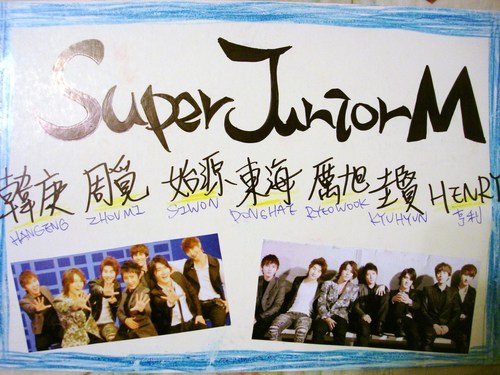 Super Junior M
韓庚 周覓 始源 東海 厲旭 圭賢 HENRY
HANGENG ZHOUMI SIWON DONGHAE RYEOWOOK KYUHYUN 亨利